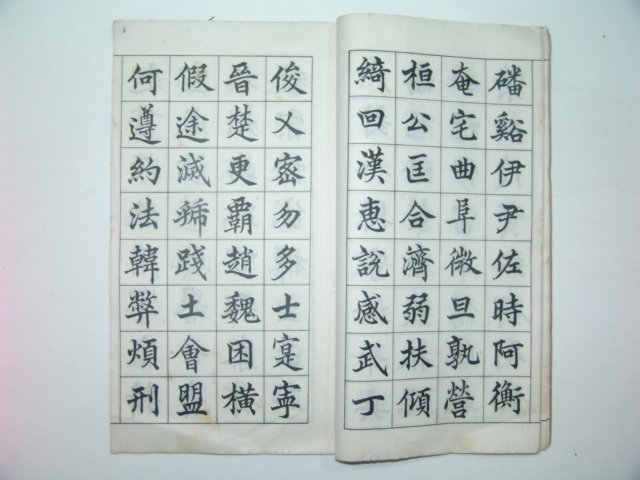 磻谿伊尹佐時阿衡
奄宅曲阜微旦孰營
桓公匡合濟弱扶傾
綺回漢惠說感武丁
俊乂密勿多士寔寧
晉楚更霸趙魏困橫
假途滅虢踐土會盟
何遵約法韓弊煩刑